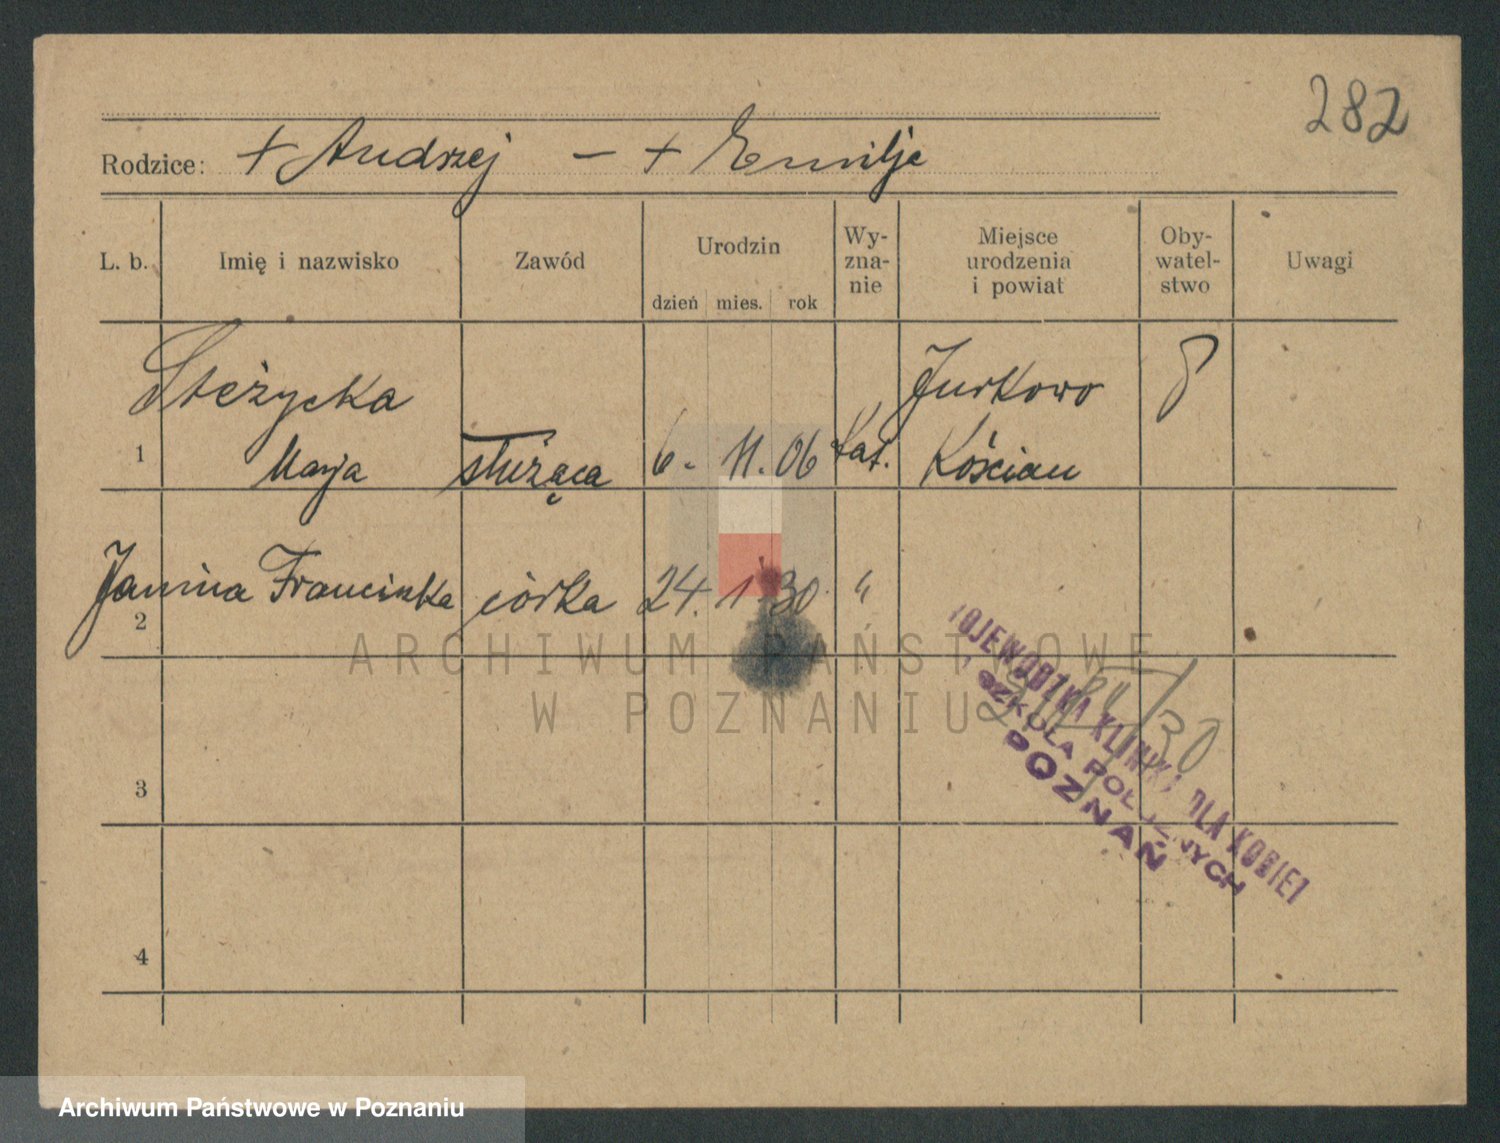 282
Rodzice: + Andrzej – + Emilje
L. b. Imię i nazwisko Zawód Urodzin dzień mies. rok Wy-zna-nie Miejsce urodzenia i powiat Oby-watel-stwo Uwagi
Steżycka Jurkowo
1 Marja służąca 6. 11. 06 kat. Kościan
Janina Franciszka córka 24. 1. 30 "
2
3
4
WOJEWÓDZKA KLINIKA DLA KOBIET
I SZKOŁA POŁOŻNYCH
POZNAŃ
ARCHIWUM PAŃSTWOWE
W POZNANIU
Archiwum Państwowe w Poznaniu